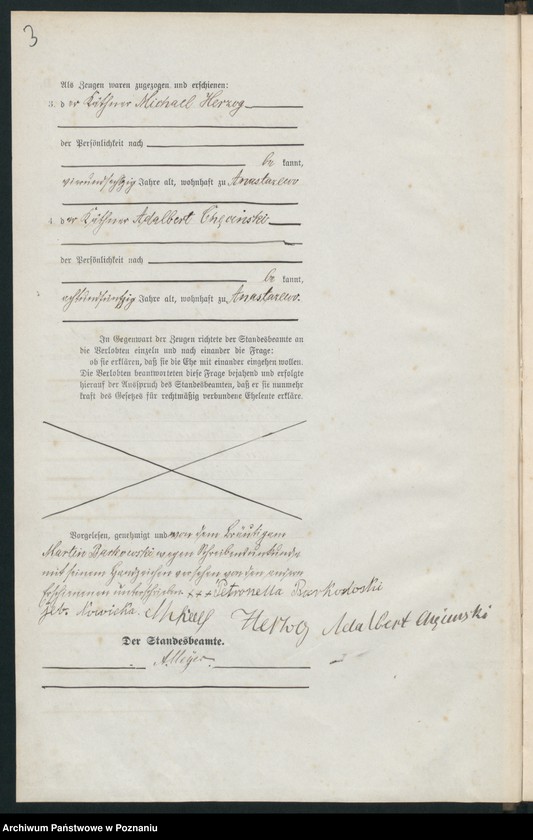 3
Als Zeugen waren zugezogen und erschienen:
3. der Käthner Michael Herzog
der Persönlichkeit nach
be kannt,
vierundsechzig Jahre alt, wohnhaft zu Anastazewo
4. der Käthner Adalbert Chęcinski
der Persönlichkeit nach
be kannt,
achtundfünfzig Jahre alt, wohnhaft zu Anastazewo.
In Gegenwart der Zeugen richtete der Standesbeamte an
die Verlobten einzeln und nach einander die Frage:
ob sie erklären, daß sie die Ehe mit einander eingehen wollen.
Die Verlobten beantworteten diese Frage bejahend und erfolgte
hierauf der Ausspruch des Standesbeamten, daß er sie nunmehr
kraft des Gesetzes für rechtmäßig verbundene Eheleute erkläre.
Vorgelesen, genehmigt und von dem Bräutigam
Martin wegen Schreibensunkunde
mit seinem Handzeichen versehen von den
Erschienenen unterschrieben +++ Petronella
geb. Nowicka. Herzog Adalbert Chęcinski
Der Standesbeamte.
A. Meyer.
Archiwum Państwowe w Poznaniu